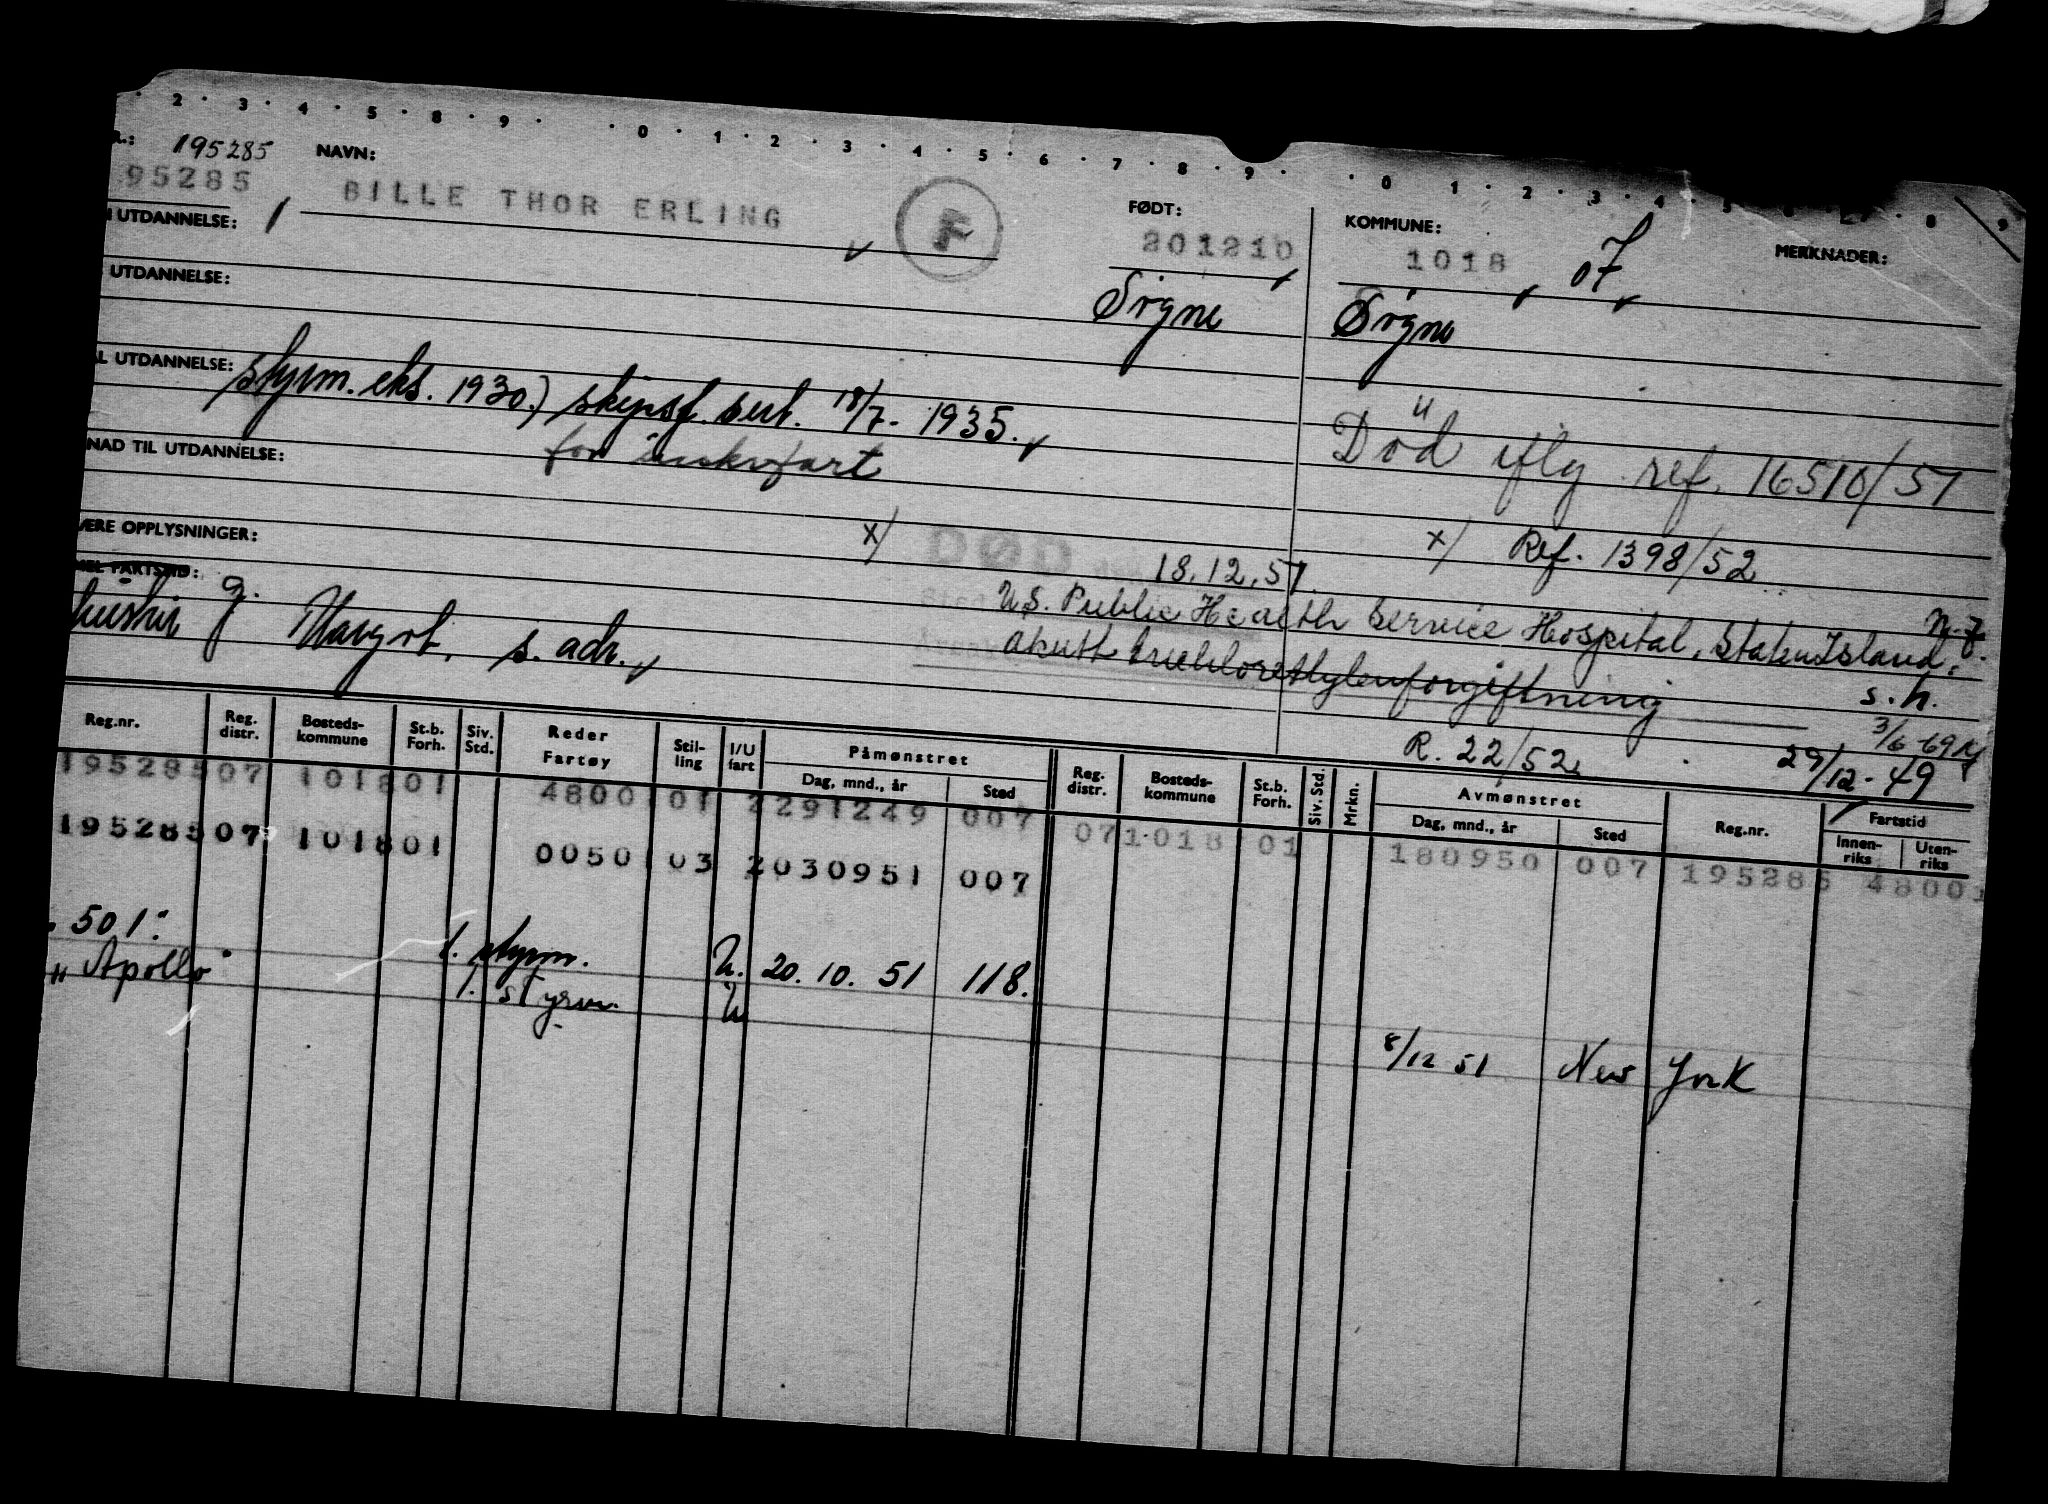 2 · 3 · 4 · 5 · 8 · 9 · · 0 · 1 · 2 · 3 · 4 · 5 · 6 · 7 · 8 · 9 · · 0 · 1 · 2 · 3 · 4 · 8 · 9
R.: 195285 NAVN:
95285 BILLE THOR ERLING F FØDT: 201210 KOMMUNE: 1018 07 MERKNADER:
UTDANNELSE: 1
UTDANNELSE: Søgne Søgne
L UTDANNELSE: styrm. eks. 1930.) skipsf. sert. 18/7- 1935.
for innkrfart
NAD TIL UTDANNELSE:
Död iflg ref. 16510/51
ÆRE OPPLYSNINGER: x) DØD 18.12.51 x) Ref. 1398/52
MEL FARTSTID: U.S. Public Health Service Hospital, Staten Island, N.Y.
hustru g. Margot, s. adr. akutt trichloretylenforgiftning s.h.
3/6-69
R. 22/52. 29/12-49
Reg.nr. Reg. distr. Bosteds-kommune St.b. Forh. Siv. Std. Reder Fartøy Stil-ling I/U fart Påmønstret Dag, mnd., år Sted Reg. distr. Bosteds-kommune St.b. Forh. Siv. Std. Mrkn. Avmønstret Dag, mnd., år Sted Reg.nr. Fartstid Innen-riks Uten-riks
195285 07 1018 01 4800 101 2 291249 007 07 1018 01 180950 007 195285 48001
195285 07 1018 01 0050 103 2 030951 007
501: 1. styrm. U. 20. 10. 51 118.
"Apollo" 1. styrm. U 8/12 51 New York